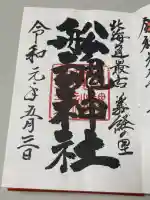 北海道最古義経の里
船魂神社
令和元年五月三日